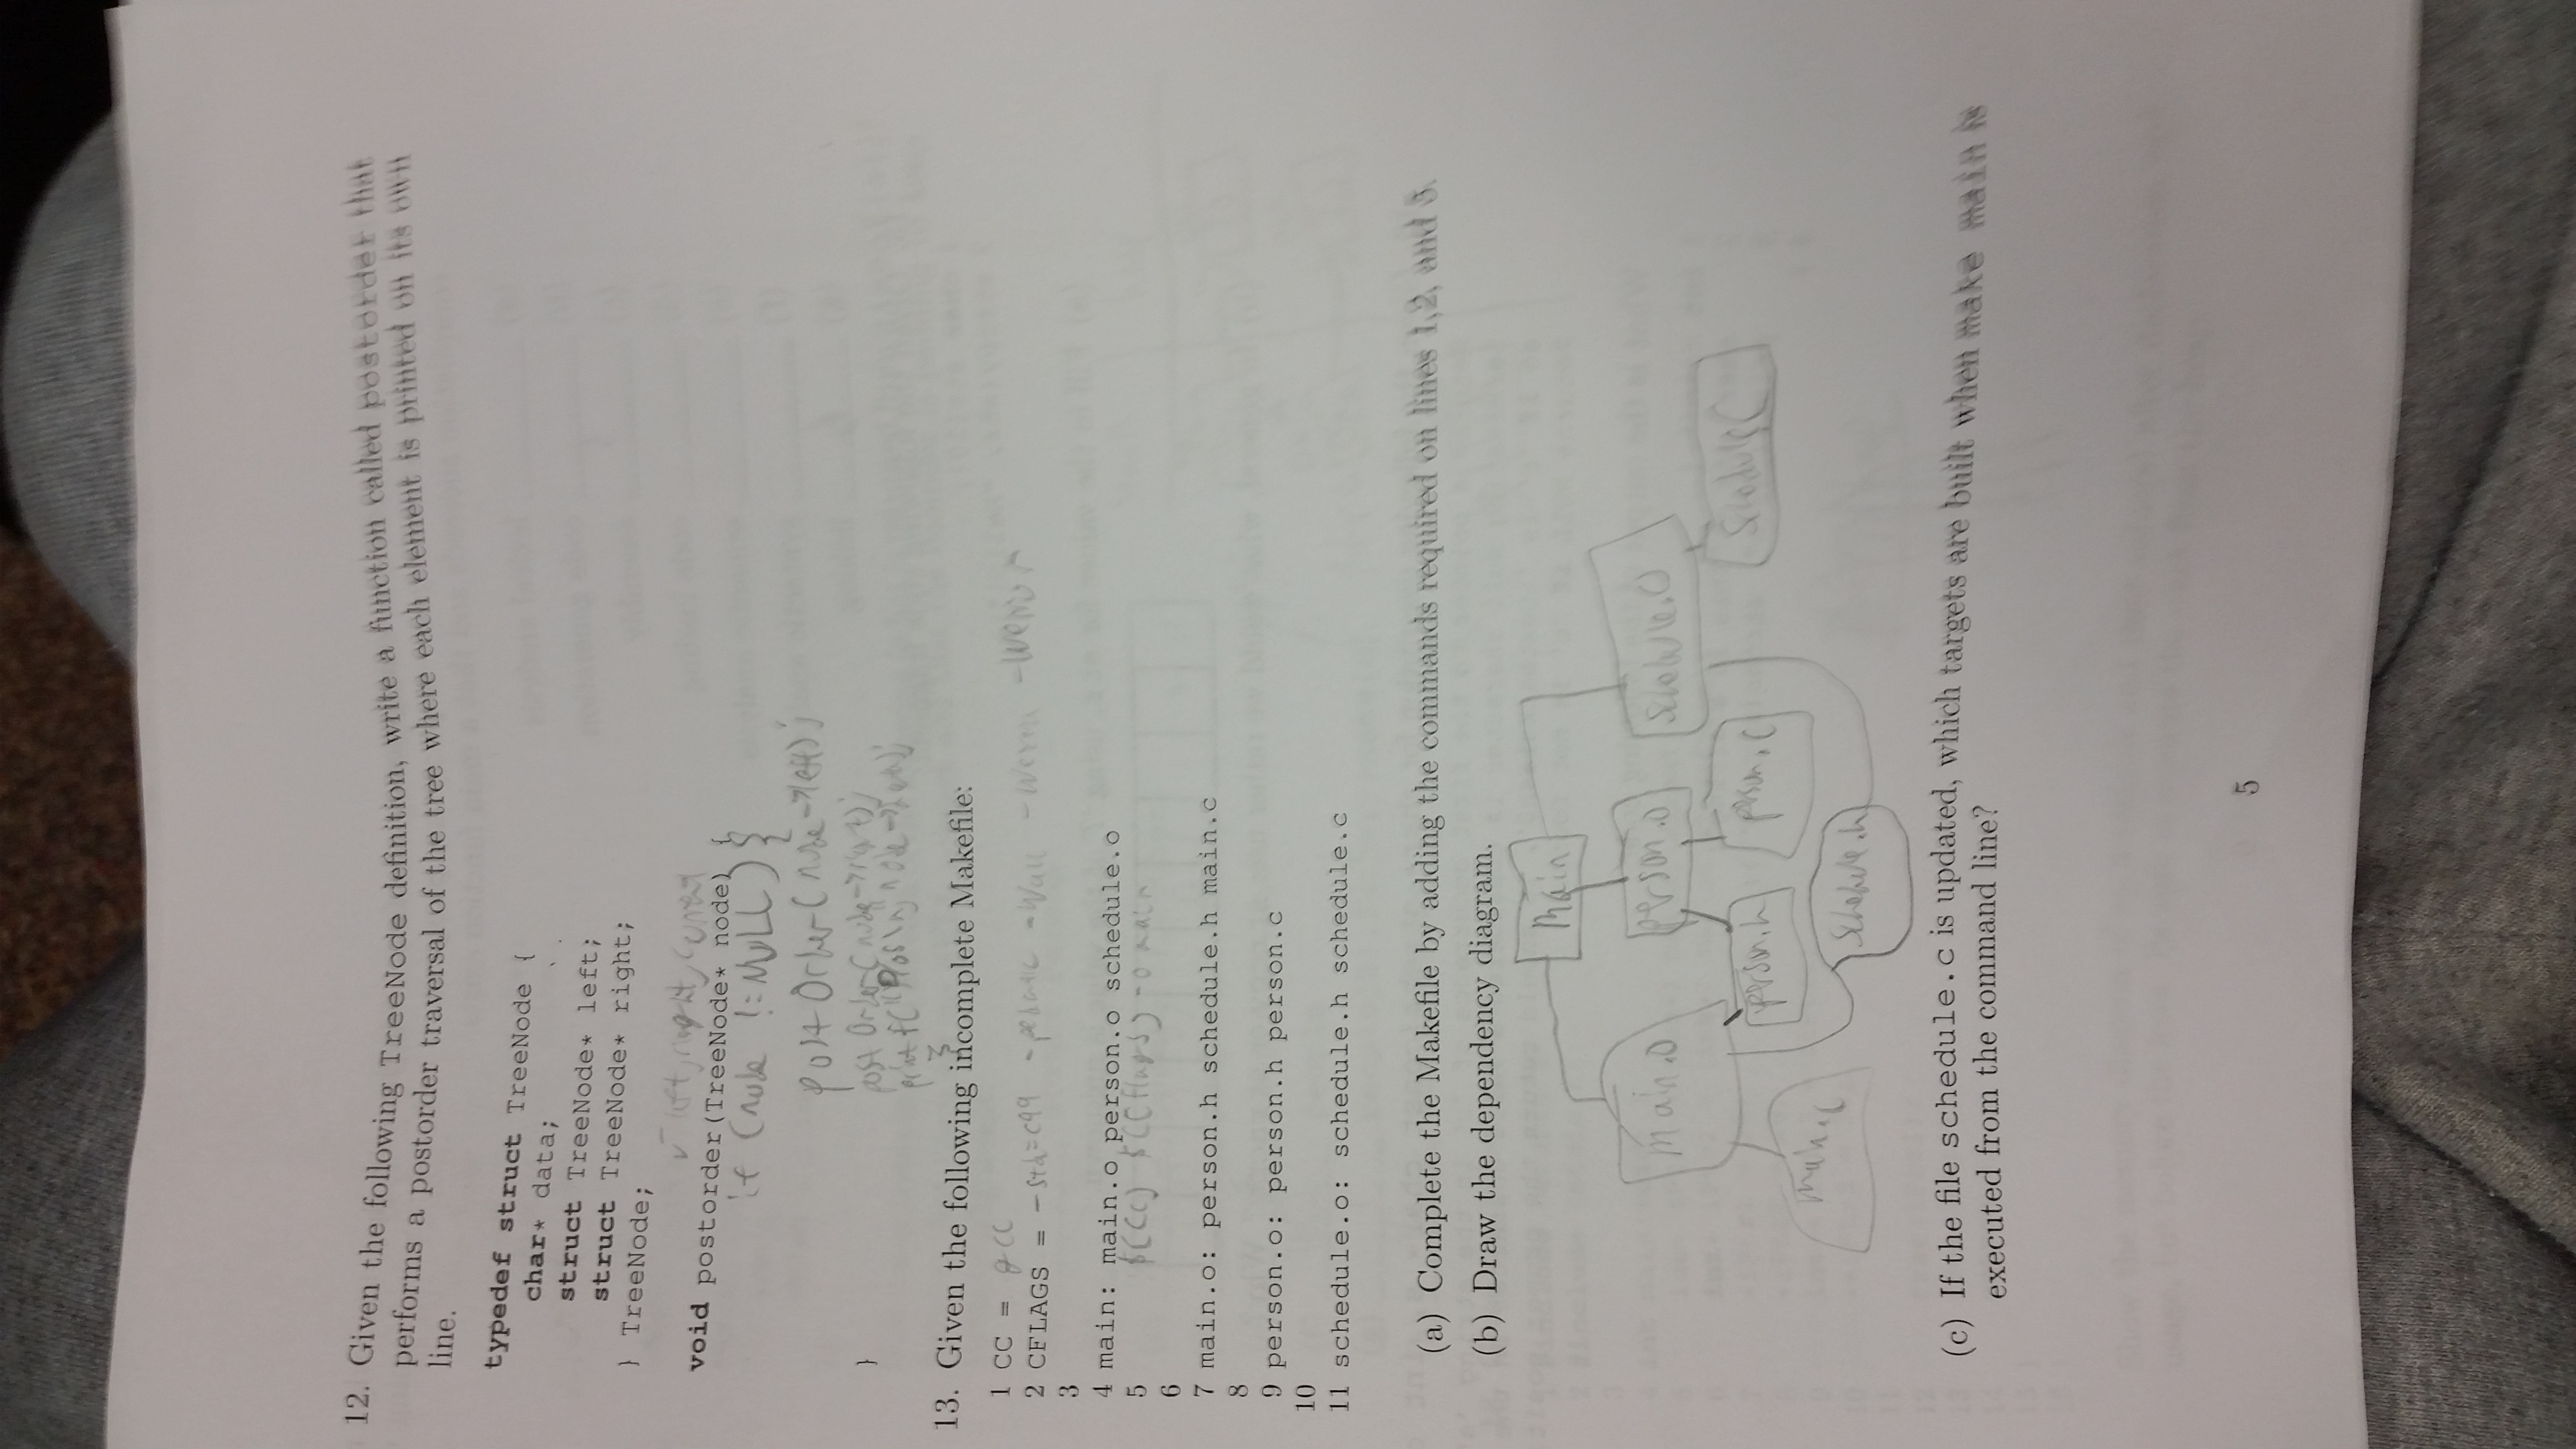 12. Given the following TreeNode definition, write a function called postorder that
performs a postorder traversal of the tree where each element is printed on its own
line.
typedef struct TreeNode {
char* data;
struct TreeNode* left;
struct TreeNode* right;
} TreeNode;
left, right, current
void postorder(TreeNode* node) {
if (node != NULL) {
postOrder(node->left);
postOrder(node->right);
printf("%s\n", node->data);
}
}
13. Given the following incomplete Makefile:
1 CC = gcc
2 CFLAGS = -std=c99 -pedantic -Wall -Werror
3
4 main: main.o person.o schedule.o
5 $(CC) $(Cflags) -o main
6
7 main.o: person.h schedule.h main.c
8
9 person.o: person.h person.c
10
11 schedule.o: schedule.h schedule.c
(a) Complete the Makefile by adding the commands required on lines 1,2, and 5.
(b) Draw the dependency diagram.
Main
main.o person.o schedule.o
person.h person.c schedule.c
main.c
schedule.h
(c) If the file schedule.c is updated, which targets are built when make main is
executed from the command line?
5